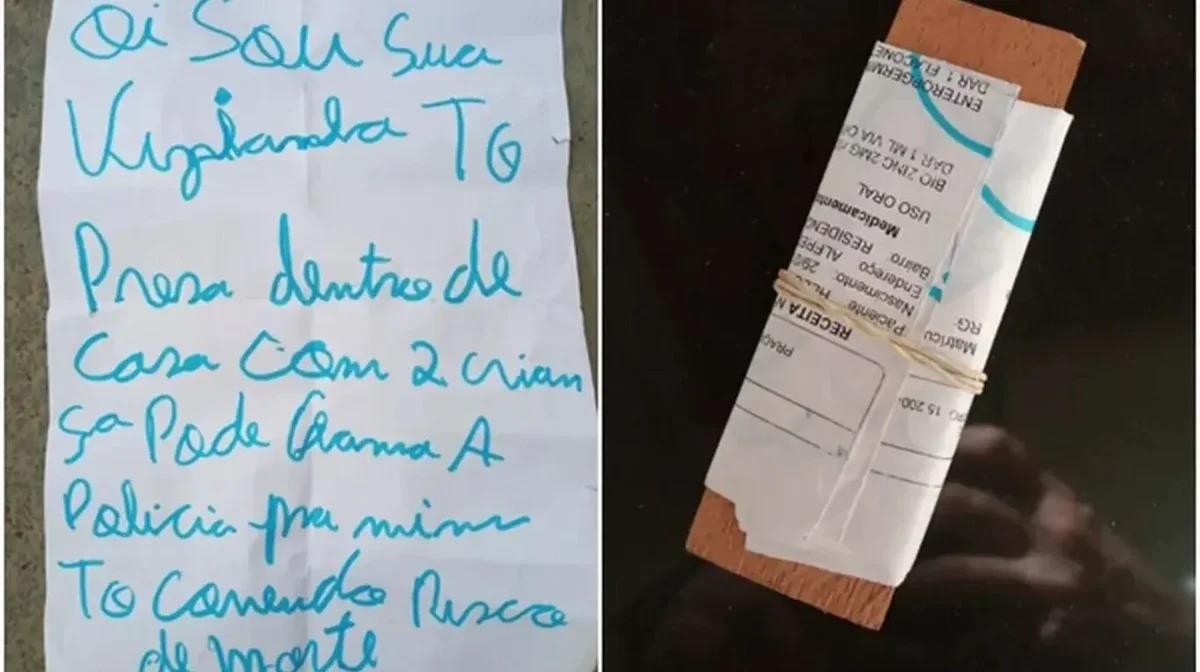 Oi Sou Sua
Vizinha TO
Presa dentro de
Casa Com 2 crian
ça Pode Chama A
Policia pra mim
To Correndo Risco
de morte
RECEITA M
Paciente
Nascimento: 29/
Endereço ALFRE
Bairro: RESIDEN
Medicamento
USO ORAL
BIO ZINC 2MG
DAR 1 ML VIA O
DAR 1 FLACONE
Matricu
RG: